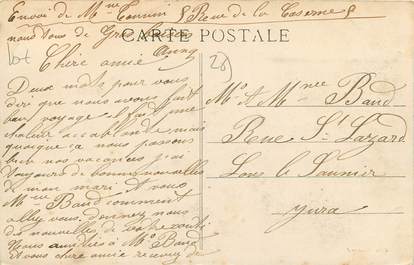 Envoi de Mme 5 Rue de la Caserne 5
nous tous de
CARTE POSTALE
Chère amie
Deux mots pour vous
dire que nous avons fait
bon voyage il fait une
chaleur accablante mais
quoique ça nous passons
bien nos vacances j'ai
toujours de bonnes nouvelles
de mon mari. Et vous
Mme Baud comment
allez vous. donnez nous
des nouvelles de votre
Nous amitiés à Mr Baud
et vous chère amie recevez de
28
Mr et Mme Baud
Rue St Lazard
Lons le Saunier
Jura